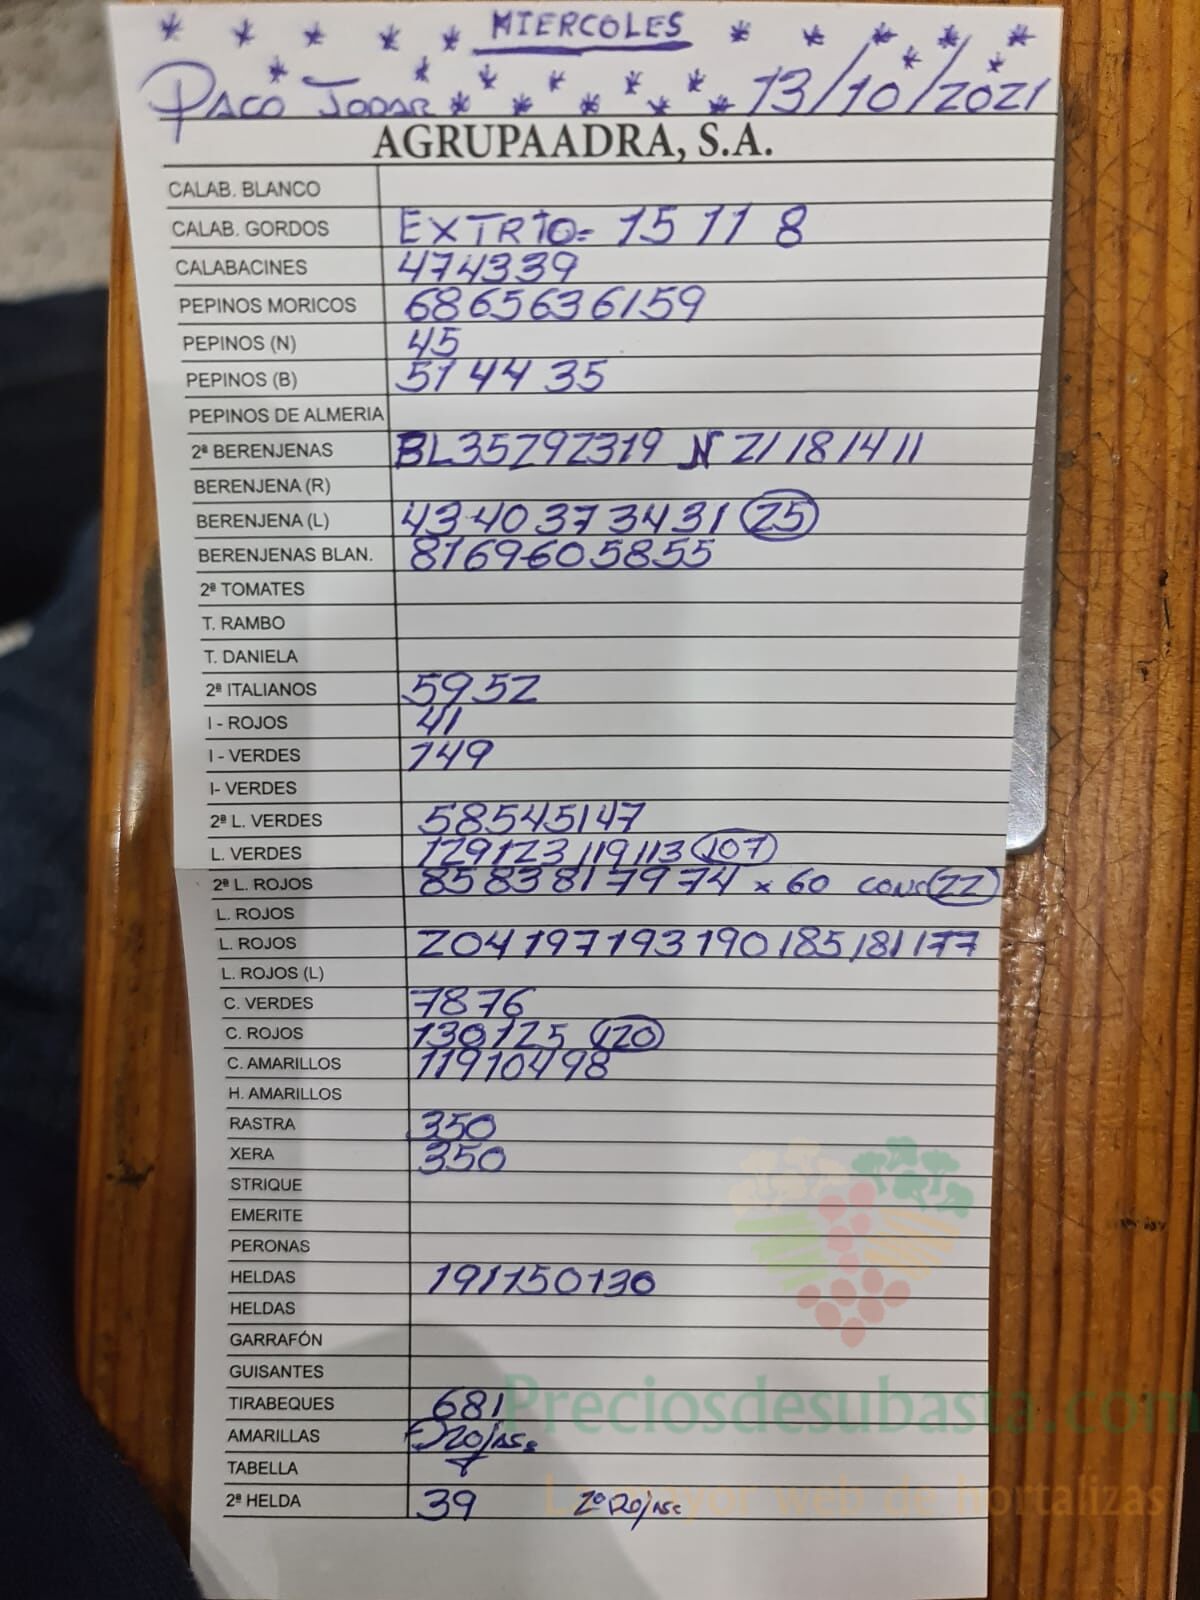 * * * * * MIERCOLES * * * * *
PACO JODAR * * * * * * * * * * 13/10/2021
AGRUPAADRA, S.A.
CALAB. BLANCO
CALAB. GORDOS EXTRTO= 15 11 8
CALABACINES 474339
PEPINOS MORICOS 6865636159
PEPINOS (N) 45
PEPINOS (B) 51 44 35
PEPINOS DE ALMERIA
2ª BERENJENAS BL35292319 N 21 18 14 11
BERENJENA (R)
BERENJENA (L) 43 40 37 34 31 25
BERENJENAS BLAN. 8169605855
2ª TOMATES
T. RAMBO
T. DANIELA
2ª ITALIANOS 5952
I - ROJOS 41
I - VERDES 149
I- VERDES
2ª L. VERDES 58545147
L. VERDES 129123119113 107
2ª L. ROJOS 85 83 81 79 74 x 60 CONS 22
L. ROJOS
L. ROJOS 204 197 193 190 185 181 177
L. ROJOS (L)
C. VERDES 7876
C. ROJOS 130125 120
C. AMARILLOS 11910498
H. AMARILLOS
RASTRA 350
XERA 350
STRIQUE
EMERITE
PERONAS
HELDAS 191150130
HELDAS
GARRAFÓN
GUISANTES
TIRABEQUES 681
AMARILLAS
TABELLA
2ª HELDA 39
Preciosdesubasta.com
La mayor web de hortalizas